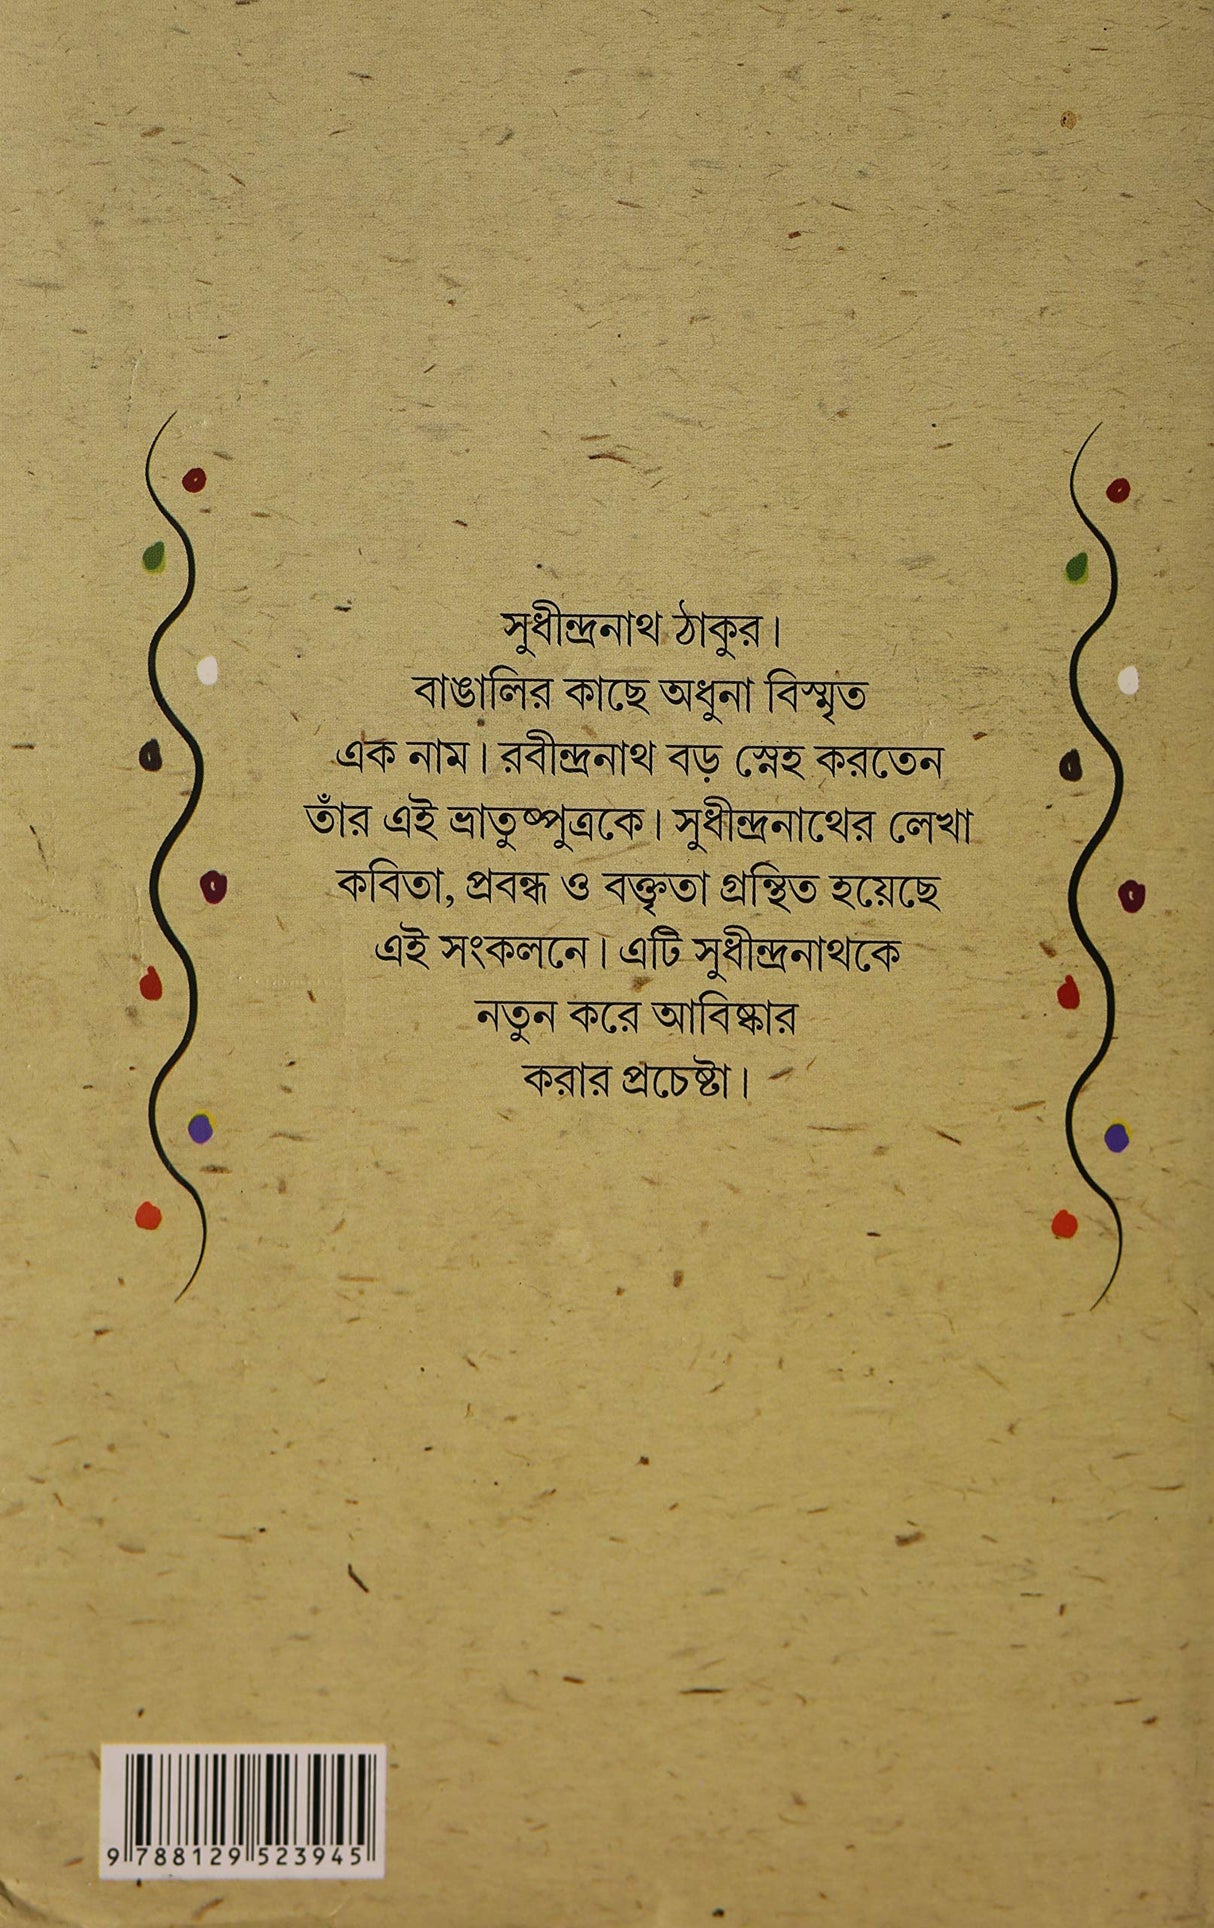 সুধীন্দ্রনাথ ঠাকুর।
বাঙালির কাছে অধুনা বিস্মৃত
এক নাম। রবীন্দ্রনাথ বড় স্নেহ করতেন
তাঁর এই ভ্রাতুষ্পুত্রকে। সুধীন্দ্রনাথের লেখা
কবিতা, প্রবন্ধ ও বক্তৃতা গ্রন্থিত হয়েছে
এই সংকলনে। এটি সুধীন্দ্রনাথকে
নতুন করে আবিষ্কার
করার প্রচেষ্টা।
9 788129 523945